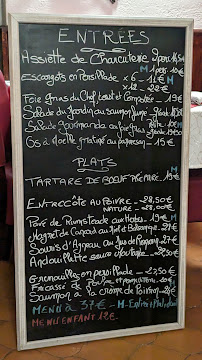 ENTRÉES
Assiette de Charcuterie
Escargots en Persillade x6 - 11€ M
x12 - 22€
Foie gras du Chef, toast et Compotée - 19€
Salade du Jardin au saumon
Salade gourmande au foie gras
Os à Moelle gratiné au parmesan - 15€
PLATS
TARTARE DE BOEUF PRÉPARÉ - 19€ M
ENTRECÔTE AU POIVRE - 28,50€
NATURE - 28,00€
Pavé de Rumsteack aux 19€ M
Magret de Canard au Miel et Balsamique
Souris d'Agneau au Jus de
Andouillette sauce
Grenouilles en persillade - 22,50€
Fricassée de
Saumon à la crème de
MENU à 37€ - M - Entrée + Plat + Dessert
MENU ENFANT 12€